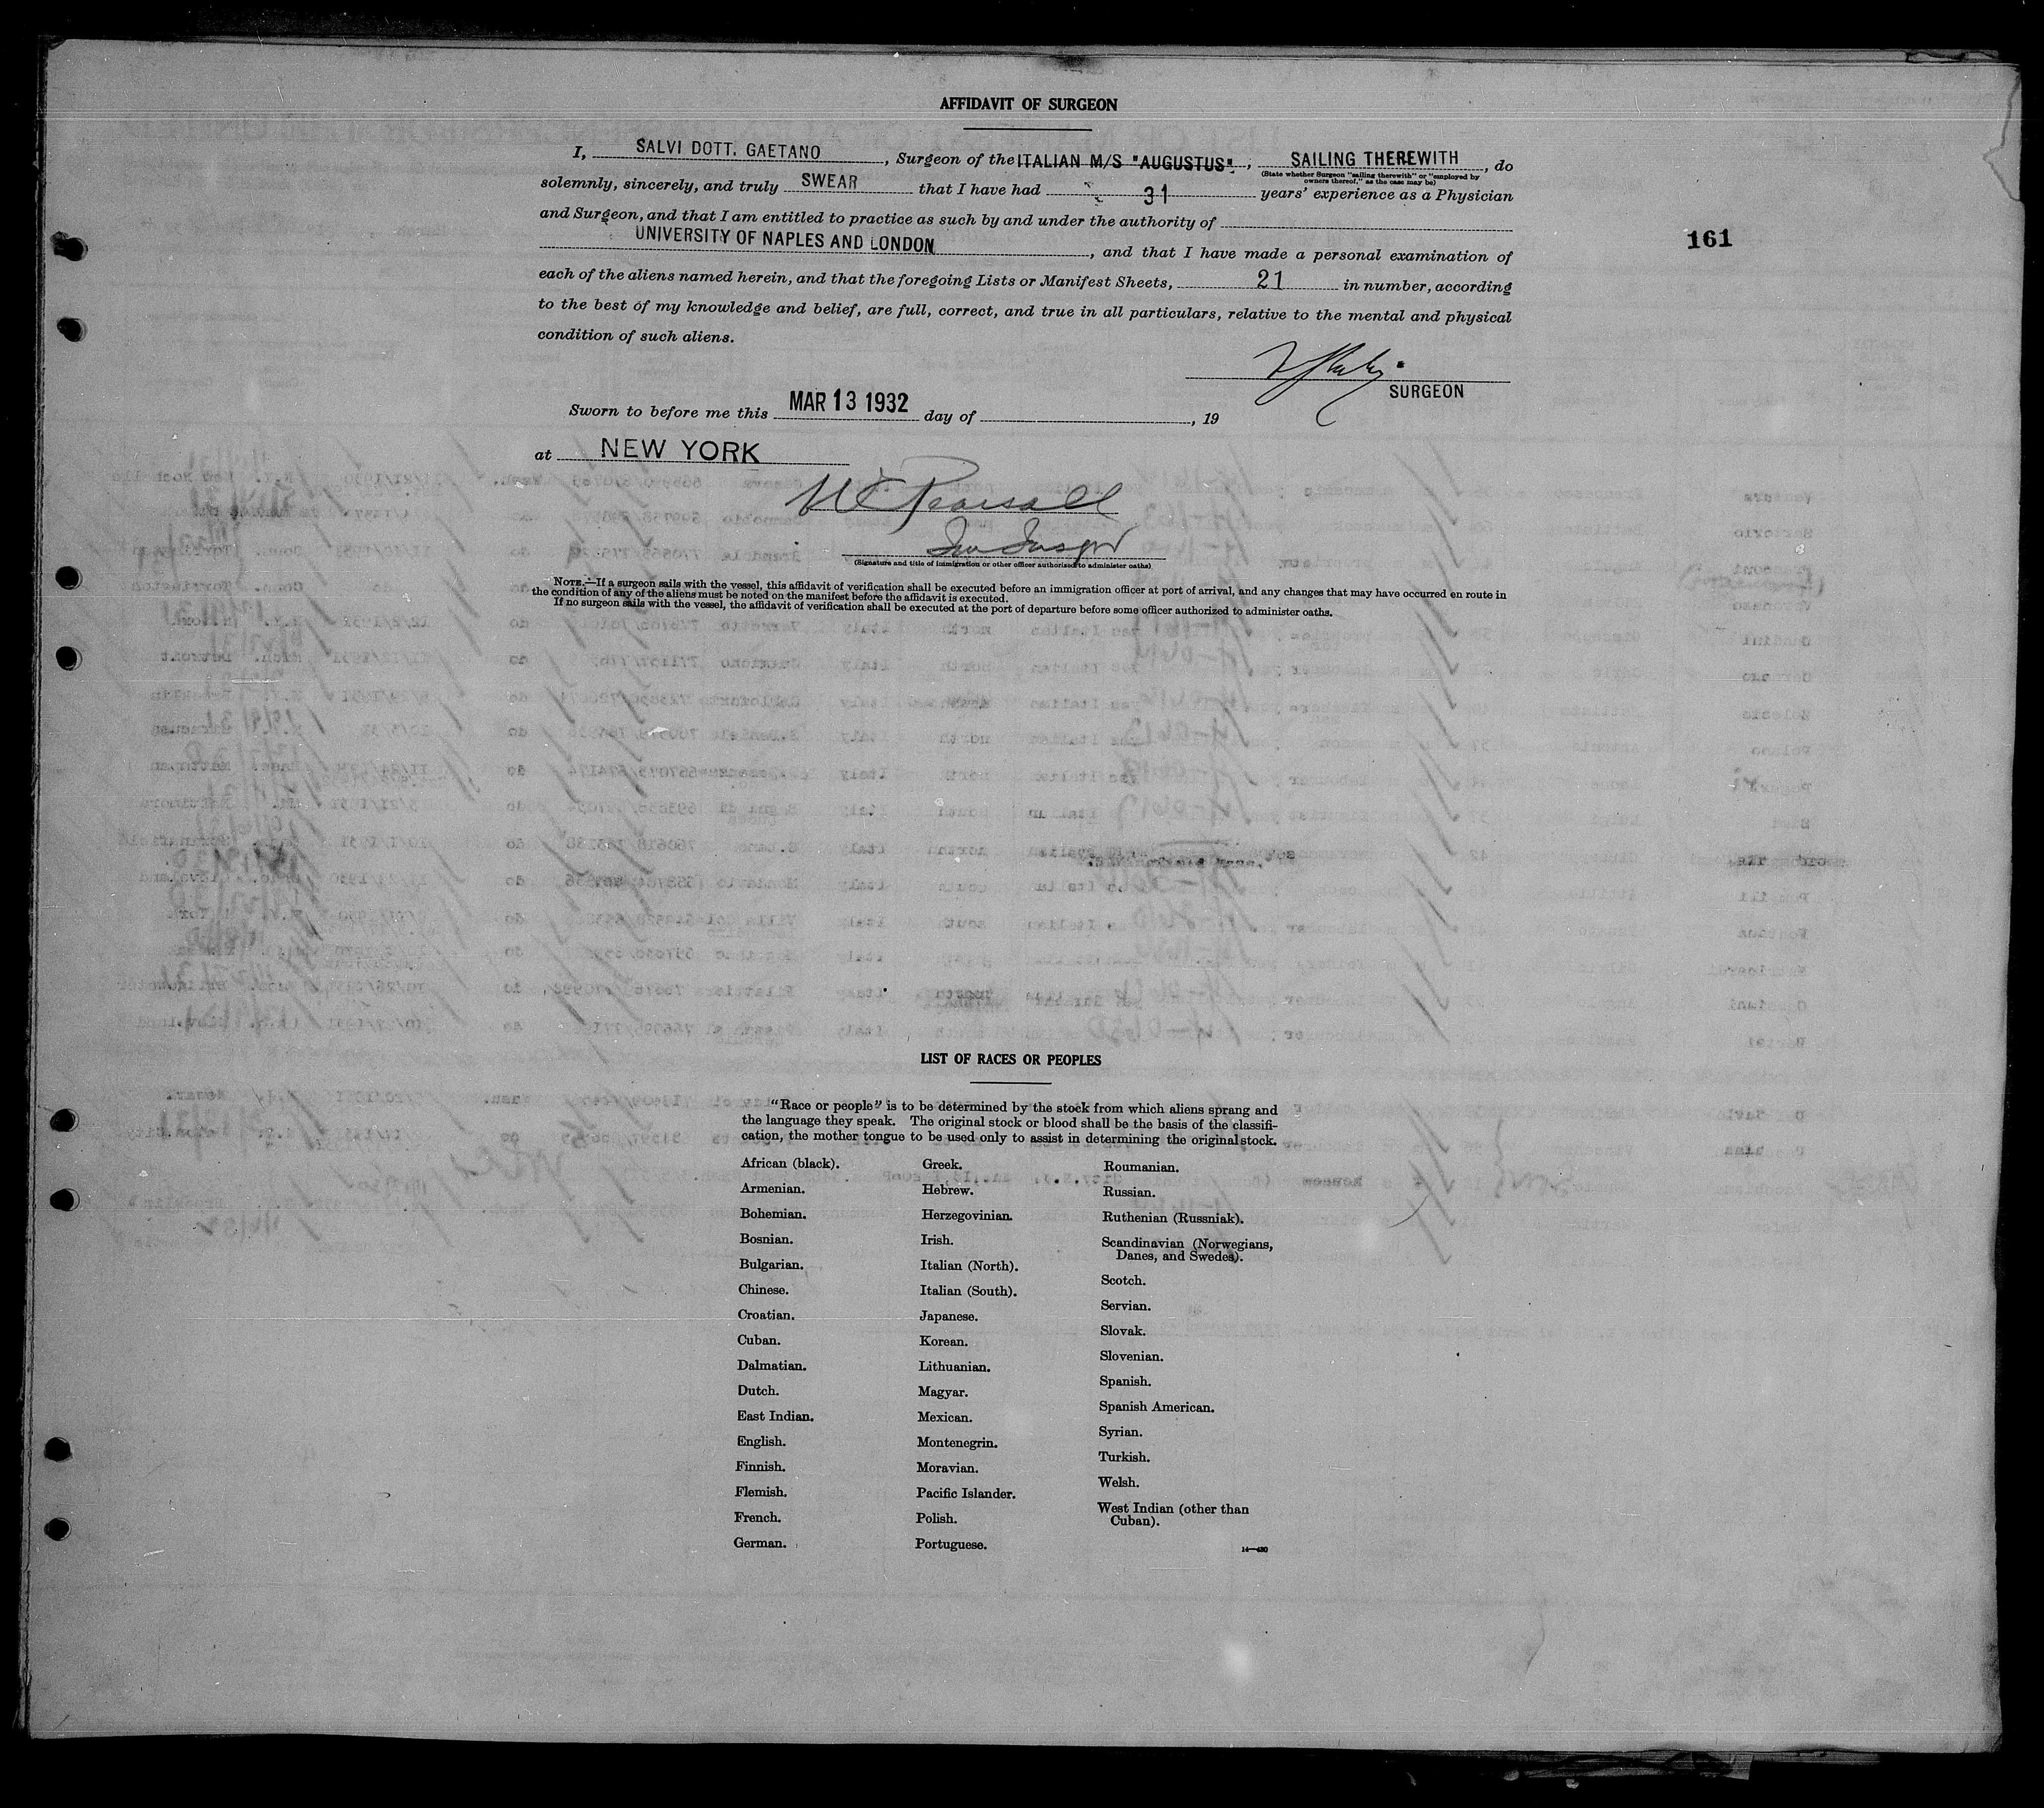 AFFIDAVIT OF SURGEON
I, SALVI DOTT. GAETANO, Surgeon of the ITALIAN M/S "AUGUSTUS", SAILING THEREWITH, do
(State whether Surgeon "sailing therewith" or "employed by
owners thereof," as the case may be)
solemnly, sincerely, and truly SWEAR that I have had 31 years' experience as a Physician
and Surgeon, and that I am entitled to practice as such by and under the authority of
UNIVERSITY OF NAPLES AND LONDON, and that I have made a personal examination of
161
each of the aliens named herein, and that the foregoing Lists or Manifest Sheets, 21 in number, according
to the best of my knowledge and belief, are full, correct, and true in all particulars, relative to the mental and physical
condition of such aliens.
SURGEON
Sworn to before me this MAR 13 1932 day of , 19
at NEW YORK
(Signature and title of immigration or other officer authorized to administer oaths)
NOTE.—If a surgeon sails with the vessel, this affidavit of verification shall be executed before an immigration officer at port of arrival, and any changes that may have occurred en route in
the condition of any of the aliens must be noted on the manifest before the affidavit is executed.
If no surgeon sails with the vessel, the affidavit of verification shall be executed at the port of departure before some officer authorized to administer oaths.
LIST OF RACES OR PEOPLES
"Race or people" is to be determined by the stock from which aliens sprang and
the language they speak. The original stock or blood shall be the basis of the classifi-
cation, the mother tongue to be used only to assist in determining the original stock.
African (black).
Armenian.
Bohemian.
Bosnian.
Bulgarian.
Chinese.
Croatian.
Cuban.
Dalmatian.
Dutch.
East Indian.
English.
Finnish.
Flemish.
French.
German.
Greek.
Hebrew.
Herzegovinian.
Irish.
Italian (North).
Italian (South).
Japanese.
Korean.
Lithuanian.
Magyar.
Mexican.
Montenegrin.
Moravian.
Pacific Islander.
Polish.
Portuguese.
Roumanian.
Russian.
Ruthenian (Russniak).
Scandinavian (Norwegians,
Danes, and Swedes).
Scotch.
Servian.
Slovak.
Slovenian.
Spanish.
Spanish American.
Syrian.
Turkish.
Welsh.
West Indian (other than
Cuban).
14—430